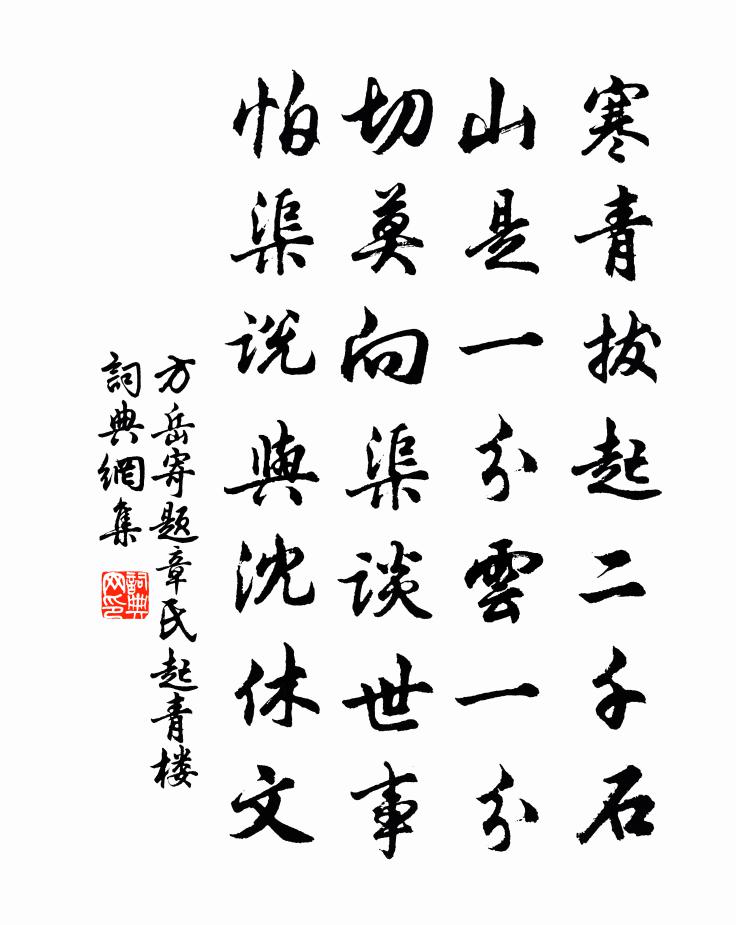 寒青拔起二千石
山是一分雲一分
切莫向渠談世事
怕渠説與沈休文
方岳寄题章氏起青楼
詞典網集
詞典
网印